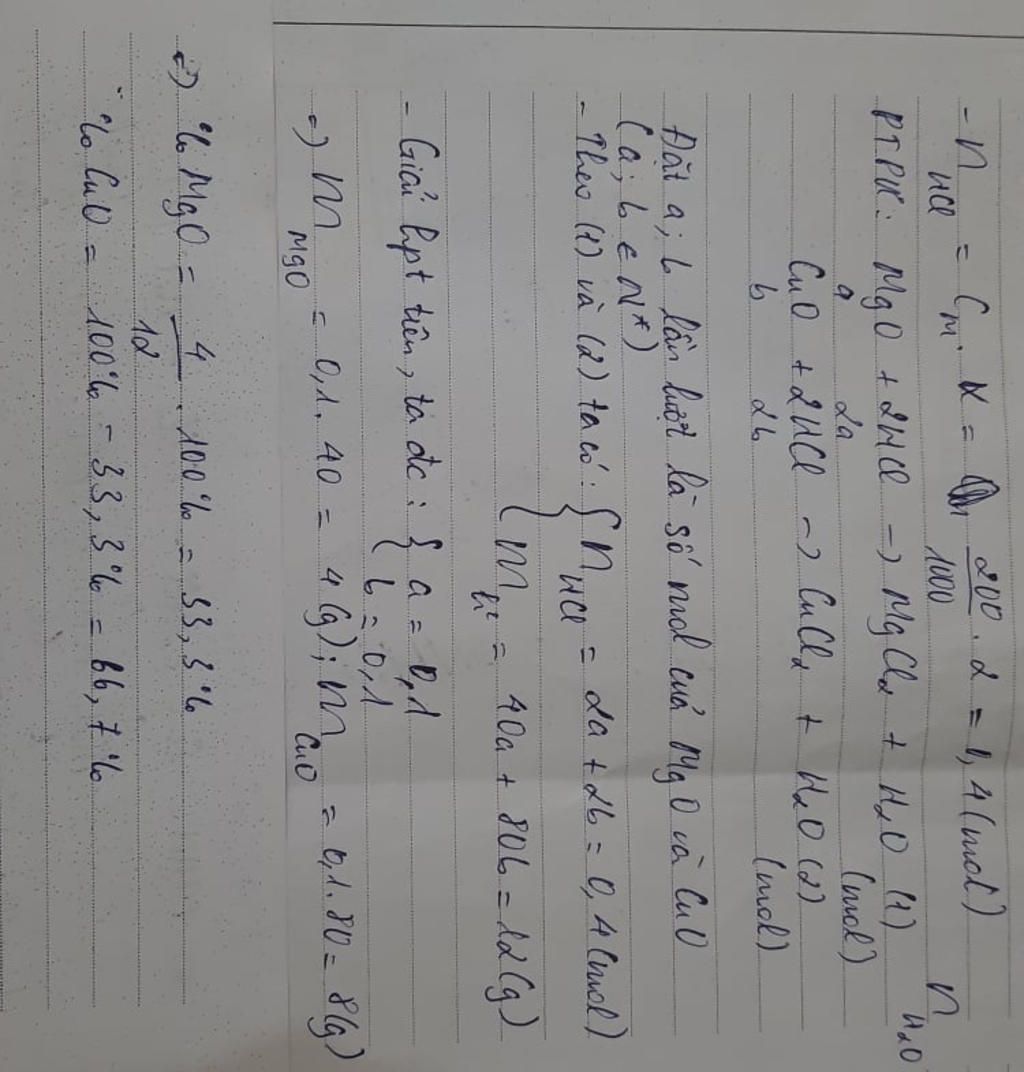 - n HCl = C M . V = 200/1000 . 2 = 0,4 (mol)
n H₂O
PTPƯ: MgO + 2HCl → MgCl₂ + H₂O (1)
a 2a (mol)
CuO + 2HCl → CuCl₂ + H₂O (2)
b 2b (mol)
Đặt a; b lần lượt là số mol của MgO và CuO
(a; b ∈ N*)
- Theo (1) và (2) ta có: { n HCl = 2a + 2b = 0,4 (mol)
{ m h² = 40a + 80b = 12 (g)
- Giải hpt trên, ta đc: { a = 0,1
{ b = 0,1
=) m MgO = 0,1. 40 = 4 (g); m CuO = 0,1. 80 = 8 (g)
=) % MgO = 4/12 . 100% = 33,3%
% CuO = 100% - 33,3% = 66,7%